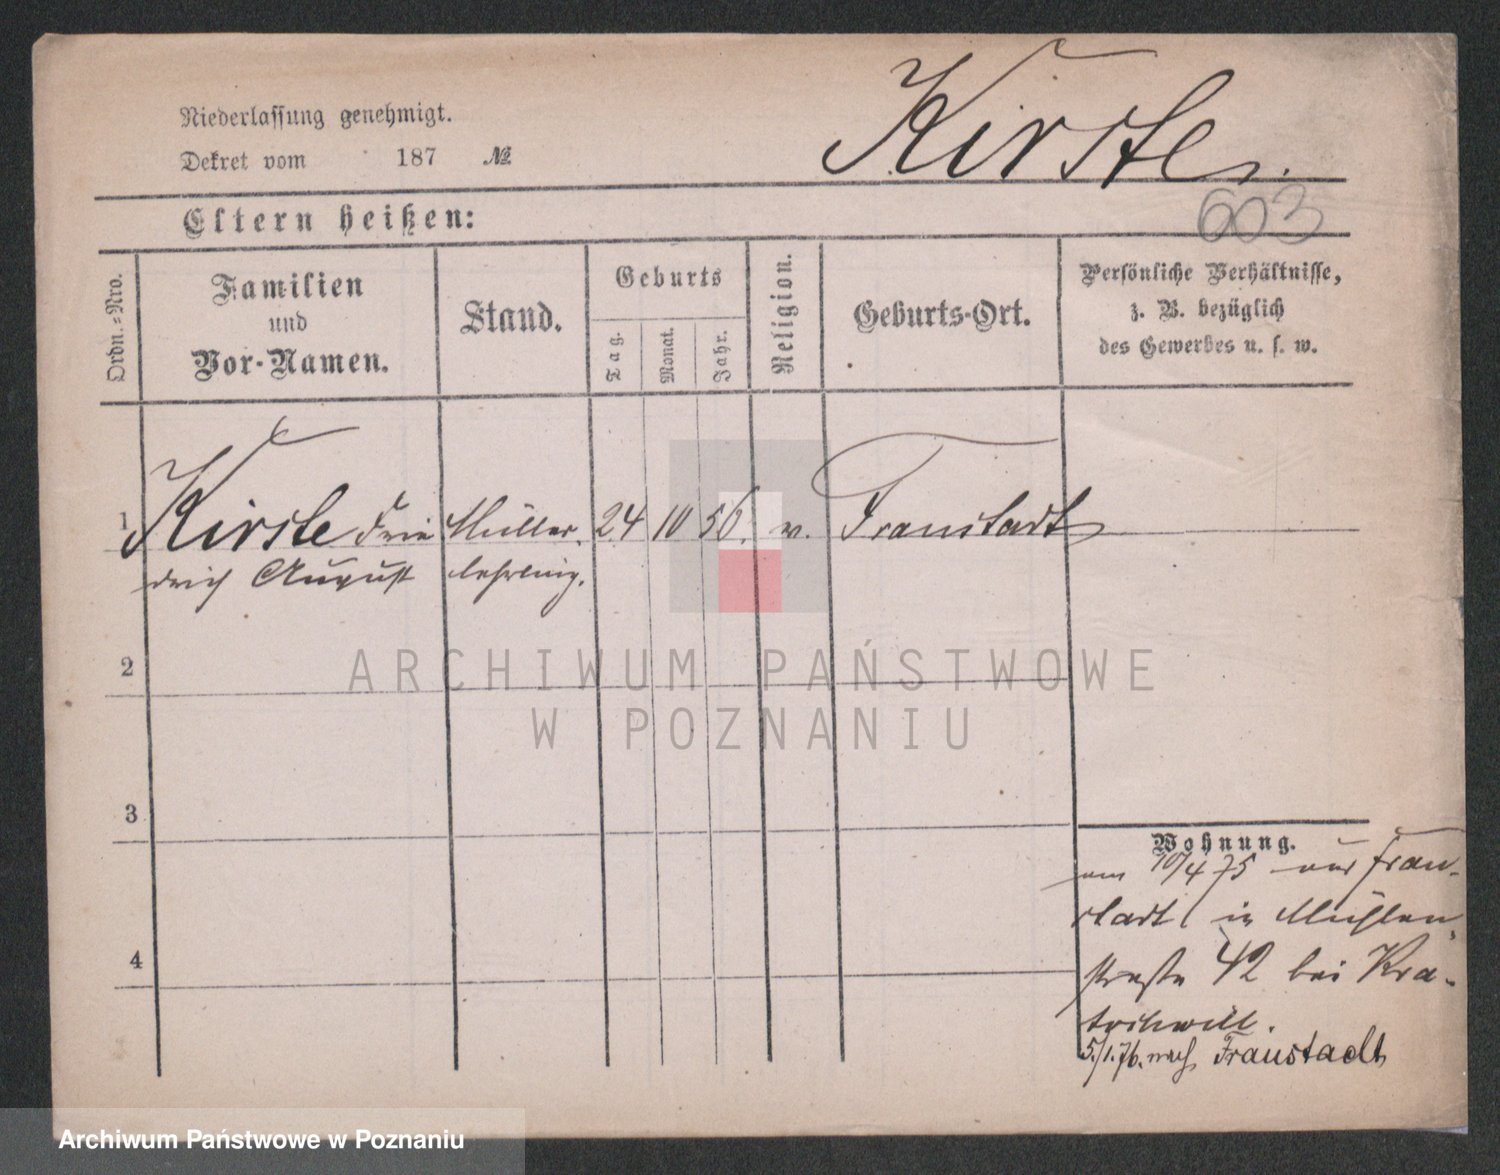 Kirste.
Niederlassung genehmigt.
Dekret vom 187 №
603
Eltern heißen:
Ordn.-Nro.
Familien
und
Vor-Namen.
Stand.
Geburts
Tag.
Monat.
Jahr.
Religion.
Geburts-Ort.
Persönliche Verhältnisse,
z. B. bezüglich
des Gewerbes u. s. w.
1 Kirste Frie Müller 24 10 56. Fraustadt
drich August lehrling.
2
ARCHIWUM PAŃSTWOWE
W POZNANIU
3
Wohnung.
am 10/4 75 aus Frau-
stadt in Mühlen-
straße 42 bei Kra-
tochwill.
5./1.76. nach Fraustadt
4
Archiwum Państwowe w Poznaniu